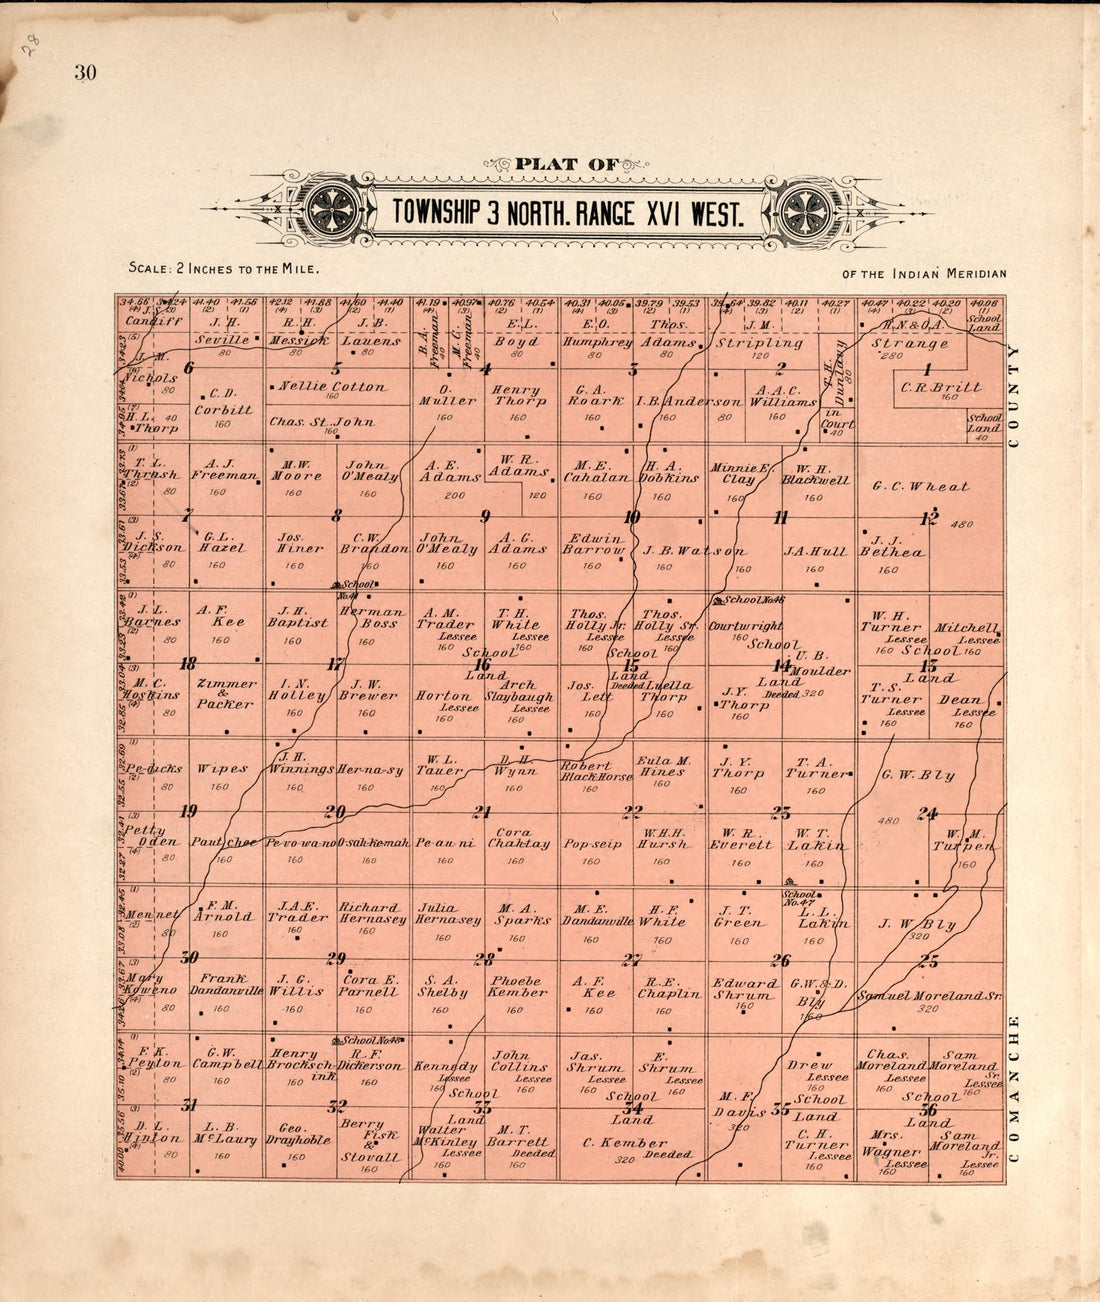 28
30
PLAT OF
TOWNSHIP 3 NORTH. RANGE XVI WEST.
SCALE: 2 INCHES TO THE MILE.
OF THE INDIAN MERIDIAN
34.66 34.24 41.40 41.56 42.12 41.88 41.60 41.40 41.19 40.97 40.76 40.54 40.31 40.05 39.79 39.53 39.64 39.82 40.11 40.27 40.47 40.22 40.20 40.06
J.S. Candiff
J. H. Seville 80
R. H. Messick 80
J. B. Lauens 80
B. A. Freeman 40
M. C. Freeman 40
E. L. Boyd 80
E. O. Humphrey 80
Thos. Adams 80
J. M. Stripling 120
T. H. Dunlavy 80
in Court 40
H. N. & O. A. Strange 280
School Land
J. M. Nichols 80
6
5
4
3
2
1
H. L. Thorp 40
C. D. Corbitt 160
Nellie Cotton 160
Chas. St. John 160
O. Muller 160
Henry Thorp 160
G. A. Roark 160
I. B. Anderson 160 80
A. A. C. Williams 160
C. R. Britt 160
School Land 40
COUNTY
T. L. Thrash 80
A. J. Freeman 160
M. W. Moore 160
John O'Mealy 160
A. E. Adams 200
W. R. Adams 120
M. E. Cahalan 160
H. A. Dobkins 160
Minnie E. Clay 160
W. H. Blackwell 160
G. C. Wheat 480
7
8
9
10
11
12
J. S. Dickson 80
G. L. Hazel 160
Jos. Hiner 160
C. W. Brandon 160
John O'Mealy 160
A. G. Adams 160
Edwin Barrow 160
J. B. Watson 160 160
J. A. Hull 160
J. J. Bethea 160
School No. 41
School No. 46
J. L. Barnes 80
A. F. Kee 160
J. H. Baptist 160
Herman Boss 160
A. M. Trader Lessee 160
T. H. White Lessee 160
Thos. Holly Jr. Lessee 160
Thos. Holly Sr. Lessee 160
Courtwright 160
W. H. Turner Lessee 160
Mitchell Lessee 160
18
17
School 16 Land
School 15 Land
School 14 Land
School 13 Land
M. C. Hoskins 80
Zimmer & Packer 160
I. N. Holley 160
J. W. Brewer 160
Horton Lessee 160
Arch Slaybaugh Lessee 160
Jos. Lett 160
Deeded Luella Thorp 160
J. Y. Thorp 160
U. B. Moulder Deeded 320
T. S. Turner Lessee 160
Dean Lessee 160
Pe-dicks 80
Wipes 160
J. H. Winnings 160
Her-na-sy 160
W. L. Tauer 160
D. H. Wynn 160
Robert Black Horse 160
Eula M. Hines 160
J. Y. Thorp 160
T. A. Turner 160
G. W. Bly 480
19
20
21
22
23
24
Petty Oden 80
Paut-chee 160
Pe-vo-wa-no 160
O-sah-ke-mah 160
Pe-au-ni 160
Cora Chahtay 160
Pop-seip 160
W. H. H. Hursh 160
W. R. Everett 160
W. T. Lakin 160
W. M. Turpen 160
School No. 47
Men-net 80
F. M. Arnold 160
J. A. E. Trader 160
Richard Hernasey 160
Julia Hernasey 160
M. A. Sparks 160
M. E. Dandanville 160
H. F. White 160
J. T. Green 160
L. L. Lakin 160
J. W. Bly 320
30
29
28
27
26
25
Mary Koweno 80
Frank Dandanville 160
J. G. Willis 160
Cora E. Parnell 160
S. A. Shelby 160
Phoebe Kember 160
A. F. Kee 160
R. E. Chaplin 160
Edward Shrum 160
G. W. & D. Bly 160
Samuel Moreland Sr. 320
School No. 48
F. K. Peyton 80
G. W. Campbell 160
Henry Brocksch ink 160
R. F. Dickerson 160
Kennedy Lessee 160
John Collins Lessee 160
Jas. Shrum Lessee 160
E. Shrum Lessee 160
M. F. Davis 320
Drew Lessee 160
Chas. Moreland Lessee 160
Sam Moreland Sr. Lessee 160
31
32
School 33 Land
School 34 Land
35 School Land
School 36 Land
D. L. Hinton 80
L. B. McLaury 160
Geo. Drayhoble 160
Berry Fisk & Stovall 160
Walter McKinley Lessee 160
M. T. Barrett Deeded 160
C. Kember 320 Deeded
C. H. Turner Lessee 160
Mrs. Wagner Lessee 160
Sam Moreland Jr. Lessee 160
COMANCHE